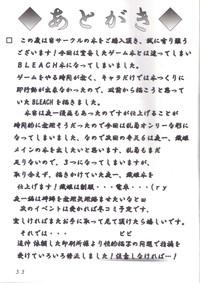 あとがき
□ この度は当サークルの本をご購入頂き、誠に有り難う
ございます!今回は萱島したゲーム本とは違ってしまい
BLEACH本になってしまいました。
ゲームをやる時間が全く、キャラだけでは本つくりに
即行動が出来なかったので、以前から描こうと思って
いたBLEACHを描きました。
本当は夜一様本でもあったのですが仕上げることが
時間的に
今回は乱菊オンリーな形に
なってしまいました。なので次回の冬コミでは夜一、織姫
メインの本を出したいと思います。乱菊もまだ
足りないので、3つになってしまいますが、
取り合えず、描きかけていた夜一様、織姫本を
仕上げます!織姫は制服・・・電車・・・(ry
夜一様は拝師を
せたいなとw
次のイベントは受かれば冬コミ予定です。
宜しければまたお手に取って見て頂けたら嬉しいです。
それでは・・・
追伸 依頼した印刷所様より性的描写の問題で指摘を
受けていろいろ修正しました!注意しなければ…!
33